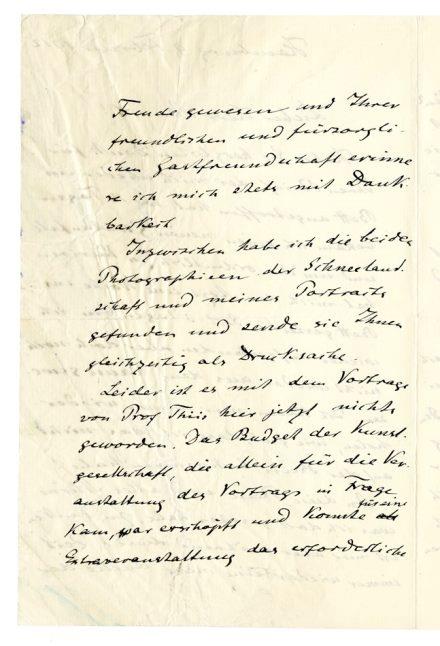 Freude gewesen und Ihrer
freundlichen und fürsorgli-
chen Gastfreundschaft erinne
re ich mich stets mit Dank
barkeit.
Inzwischen habe ich die beiden
Photographieen der Schneeland.
schaft und meines Portraits
gefunden und sende sie Ihnen
gleichzeitig als Drucksache.
Leider ist es mit dem Vortrage
von Prof Thiis hier jetzt nichts
geworden. Das Budget der Kunst-
gesellschaft, die allein für die Ver-
anstaltung des Vortrags in Frage
kam, war erschöpft und konnte für eine
Extraveranstaltung das erforderliche